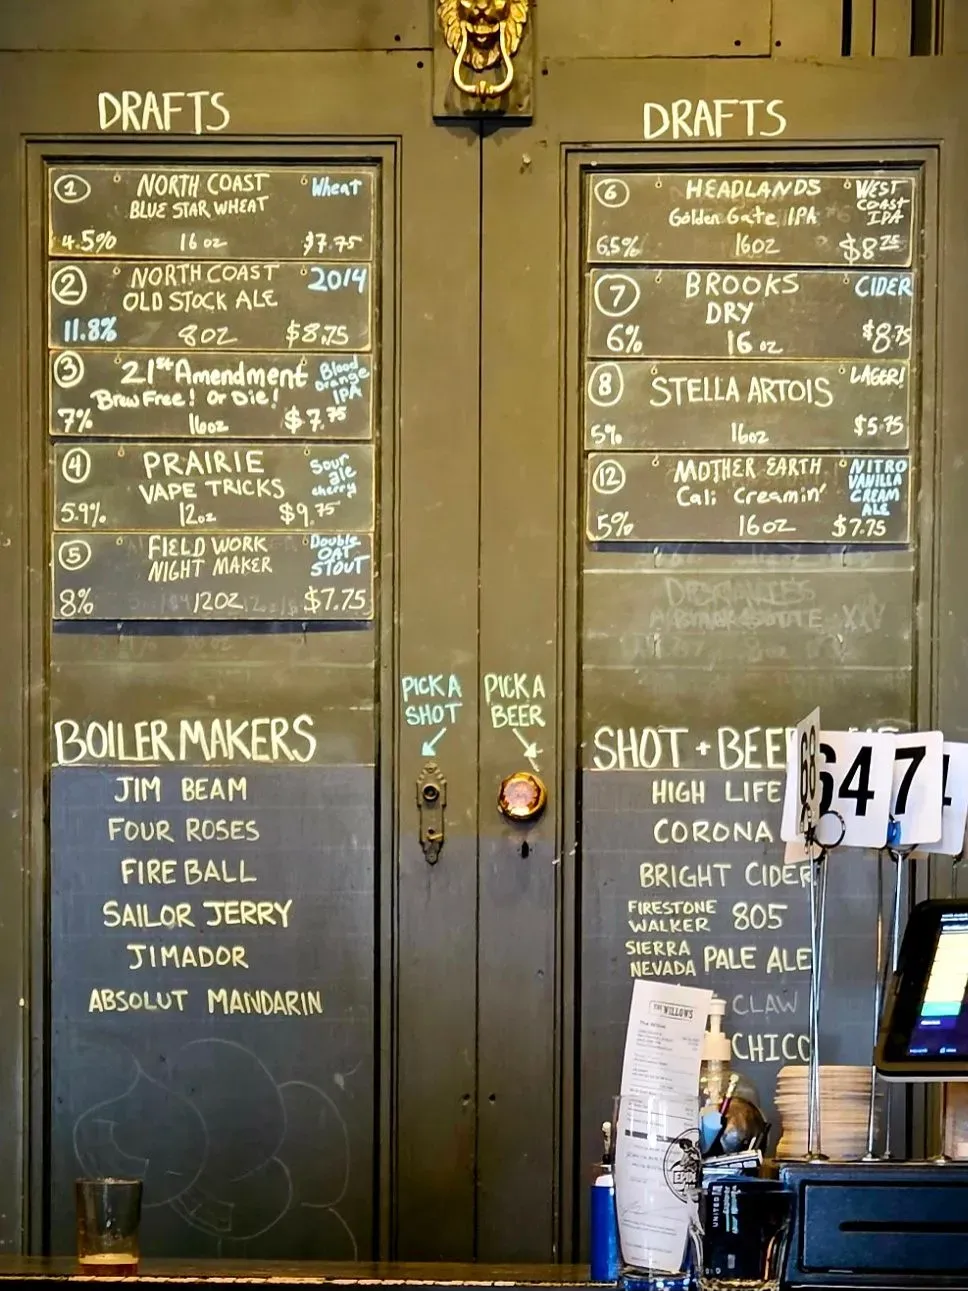 DRAFTS
1 NORTH COAST Wheat
BLUE STAR WHEAT
4.5% 16oz $7.75
2 NORTH COAST 2014
OLD STOCK ALE
11.8% 8OZ $8.75
3 21st Amendment Blood Orange IPA
Brew Free! Or Die!
7% 16oz $7.75
4 PRAIRIE Sour ale cherry
VAPE TRICKS
5.9% 12oz $9.75
5 FIELD WORK Double OAT STOUT
NIGHT MAKER
8% 12OZ $7.75
DRAFTS
6 HEADLANDS WEST COAST IPA
Golden Gate IPA
6.5% 16OZ $8.25
7 BROOKS CIDER
DRY
6% 16 oz $8.75
8 STELLA ARTOIS LAGER!
5% 16oz $5.75
12 MOTHER EARTH NITRO VANILLA CREAM ALE
Cali Creamin'
5% 16OZ $7.75
PICK A
SHOT
PICK A
BEER
BOILERMAKERS
JIM BEAM
FOUR ROSES
FIREBALL
SAILOR JERRY
JIMADOR
ABSOLUT MANDARIN
SHOT + BEER
HIGH LIFE
CORONA
BRIGHT CIDER
FIRESTONE
WALKER 805
SIERRA
NEVADA PALE ALE
CLAW
CHICO
64
7
THE WILLOWS
UNITED